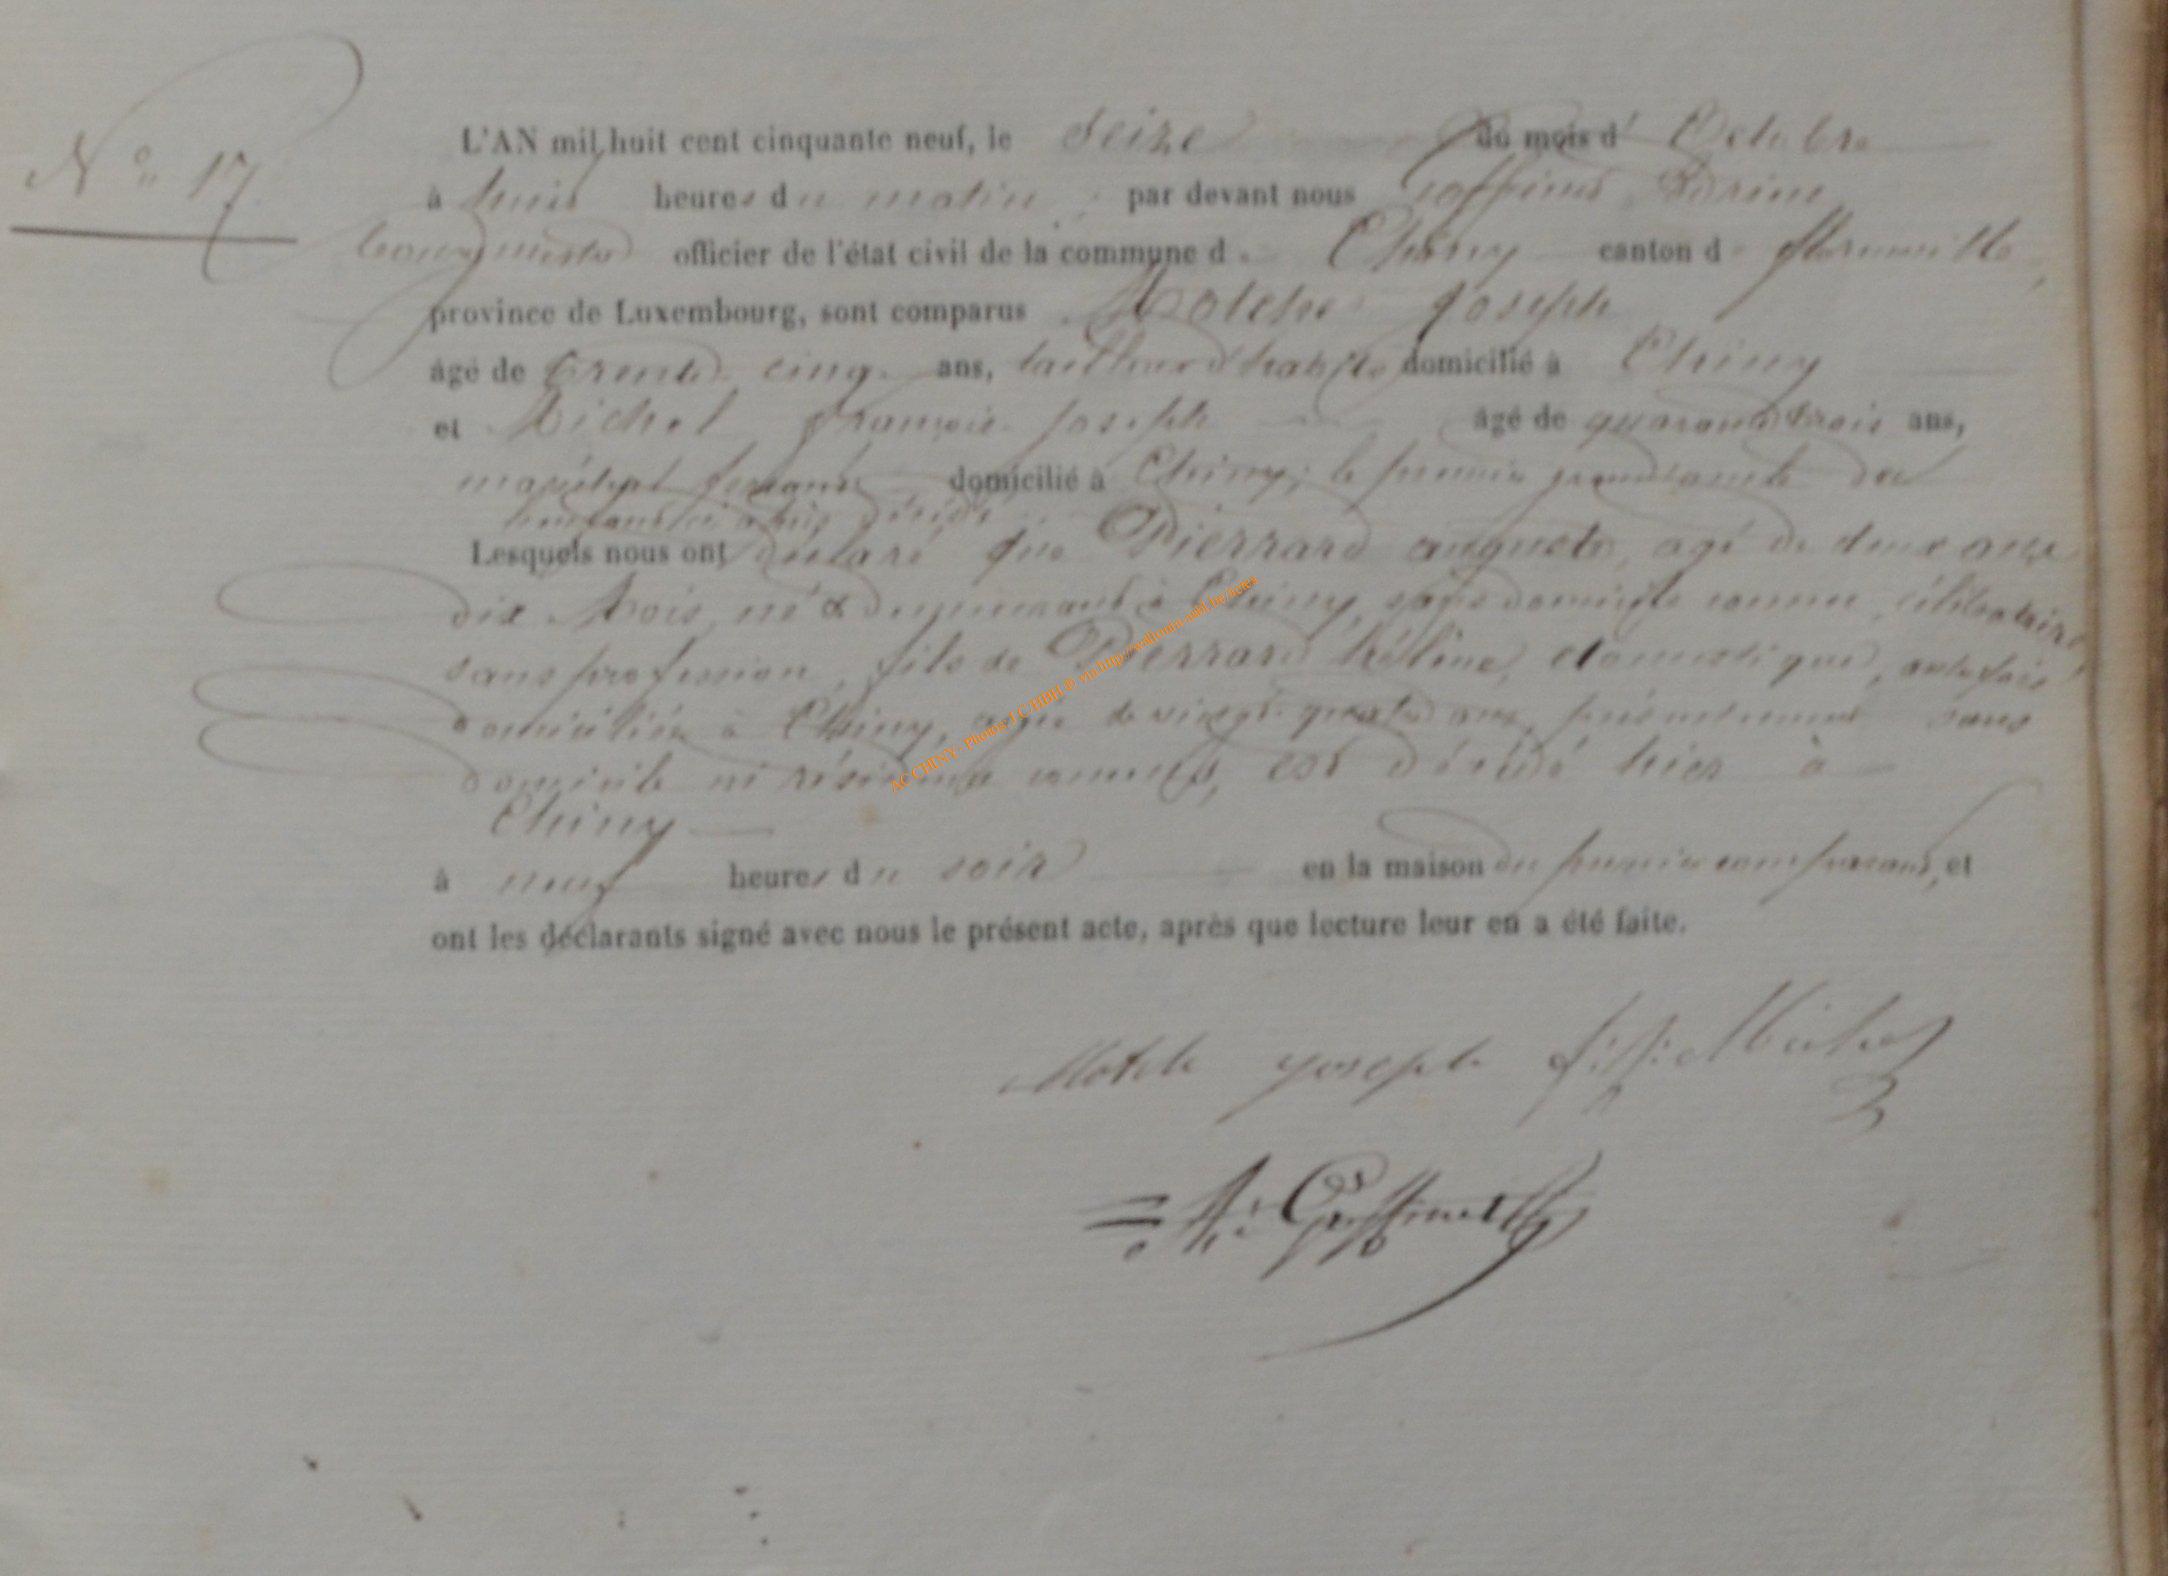 N° 17.
L'AN mil huit cent cinquante neuf, le Seize du mois d' Octobre
à huit heures du matin, par devant nous
Bourgmestre officier de l'état civil de la commune de Chiny canton de florenville,
province de Luxembourg, sont comparus Motche Joseph
âgé de trente cinq ans, tailleur d'habits domicilié à Chiny
et Michel françois joseph âgé de quarante trois ans,
maréchal ferrant domicilié à Chiny; le premier grand oncle du
ci après décédé
Lesquels nous ont déclaré que Pierrard auguste, agé de deux ans
dix Mois, né & demeurant à Chiny, sans domicile connu, célibataire,
sans profession, fils de Pierrard héline, domestique, autrefois
domiciliée à Chiny, agée de vingt quatre ans, présentement sans
domicile ni résidence connus, est décédé hier à
Chiny
à neuf heures du soir en la maison du premier comparant, et
ont les déclarants signé avec nous le présent acte, après que lecture leur en a été faite.
Motch joseph f: j: Michel
AC CHINY - Photos J C HBH ® via http://wallonia-asbl.be/actes